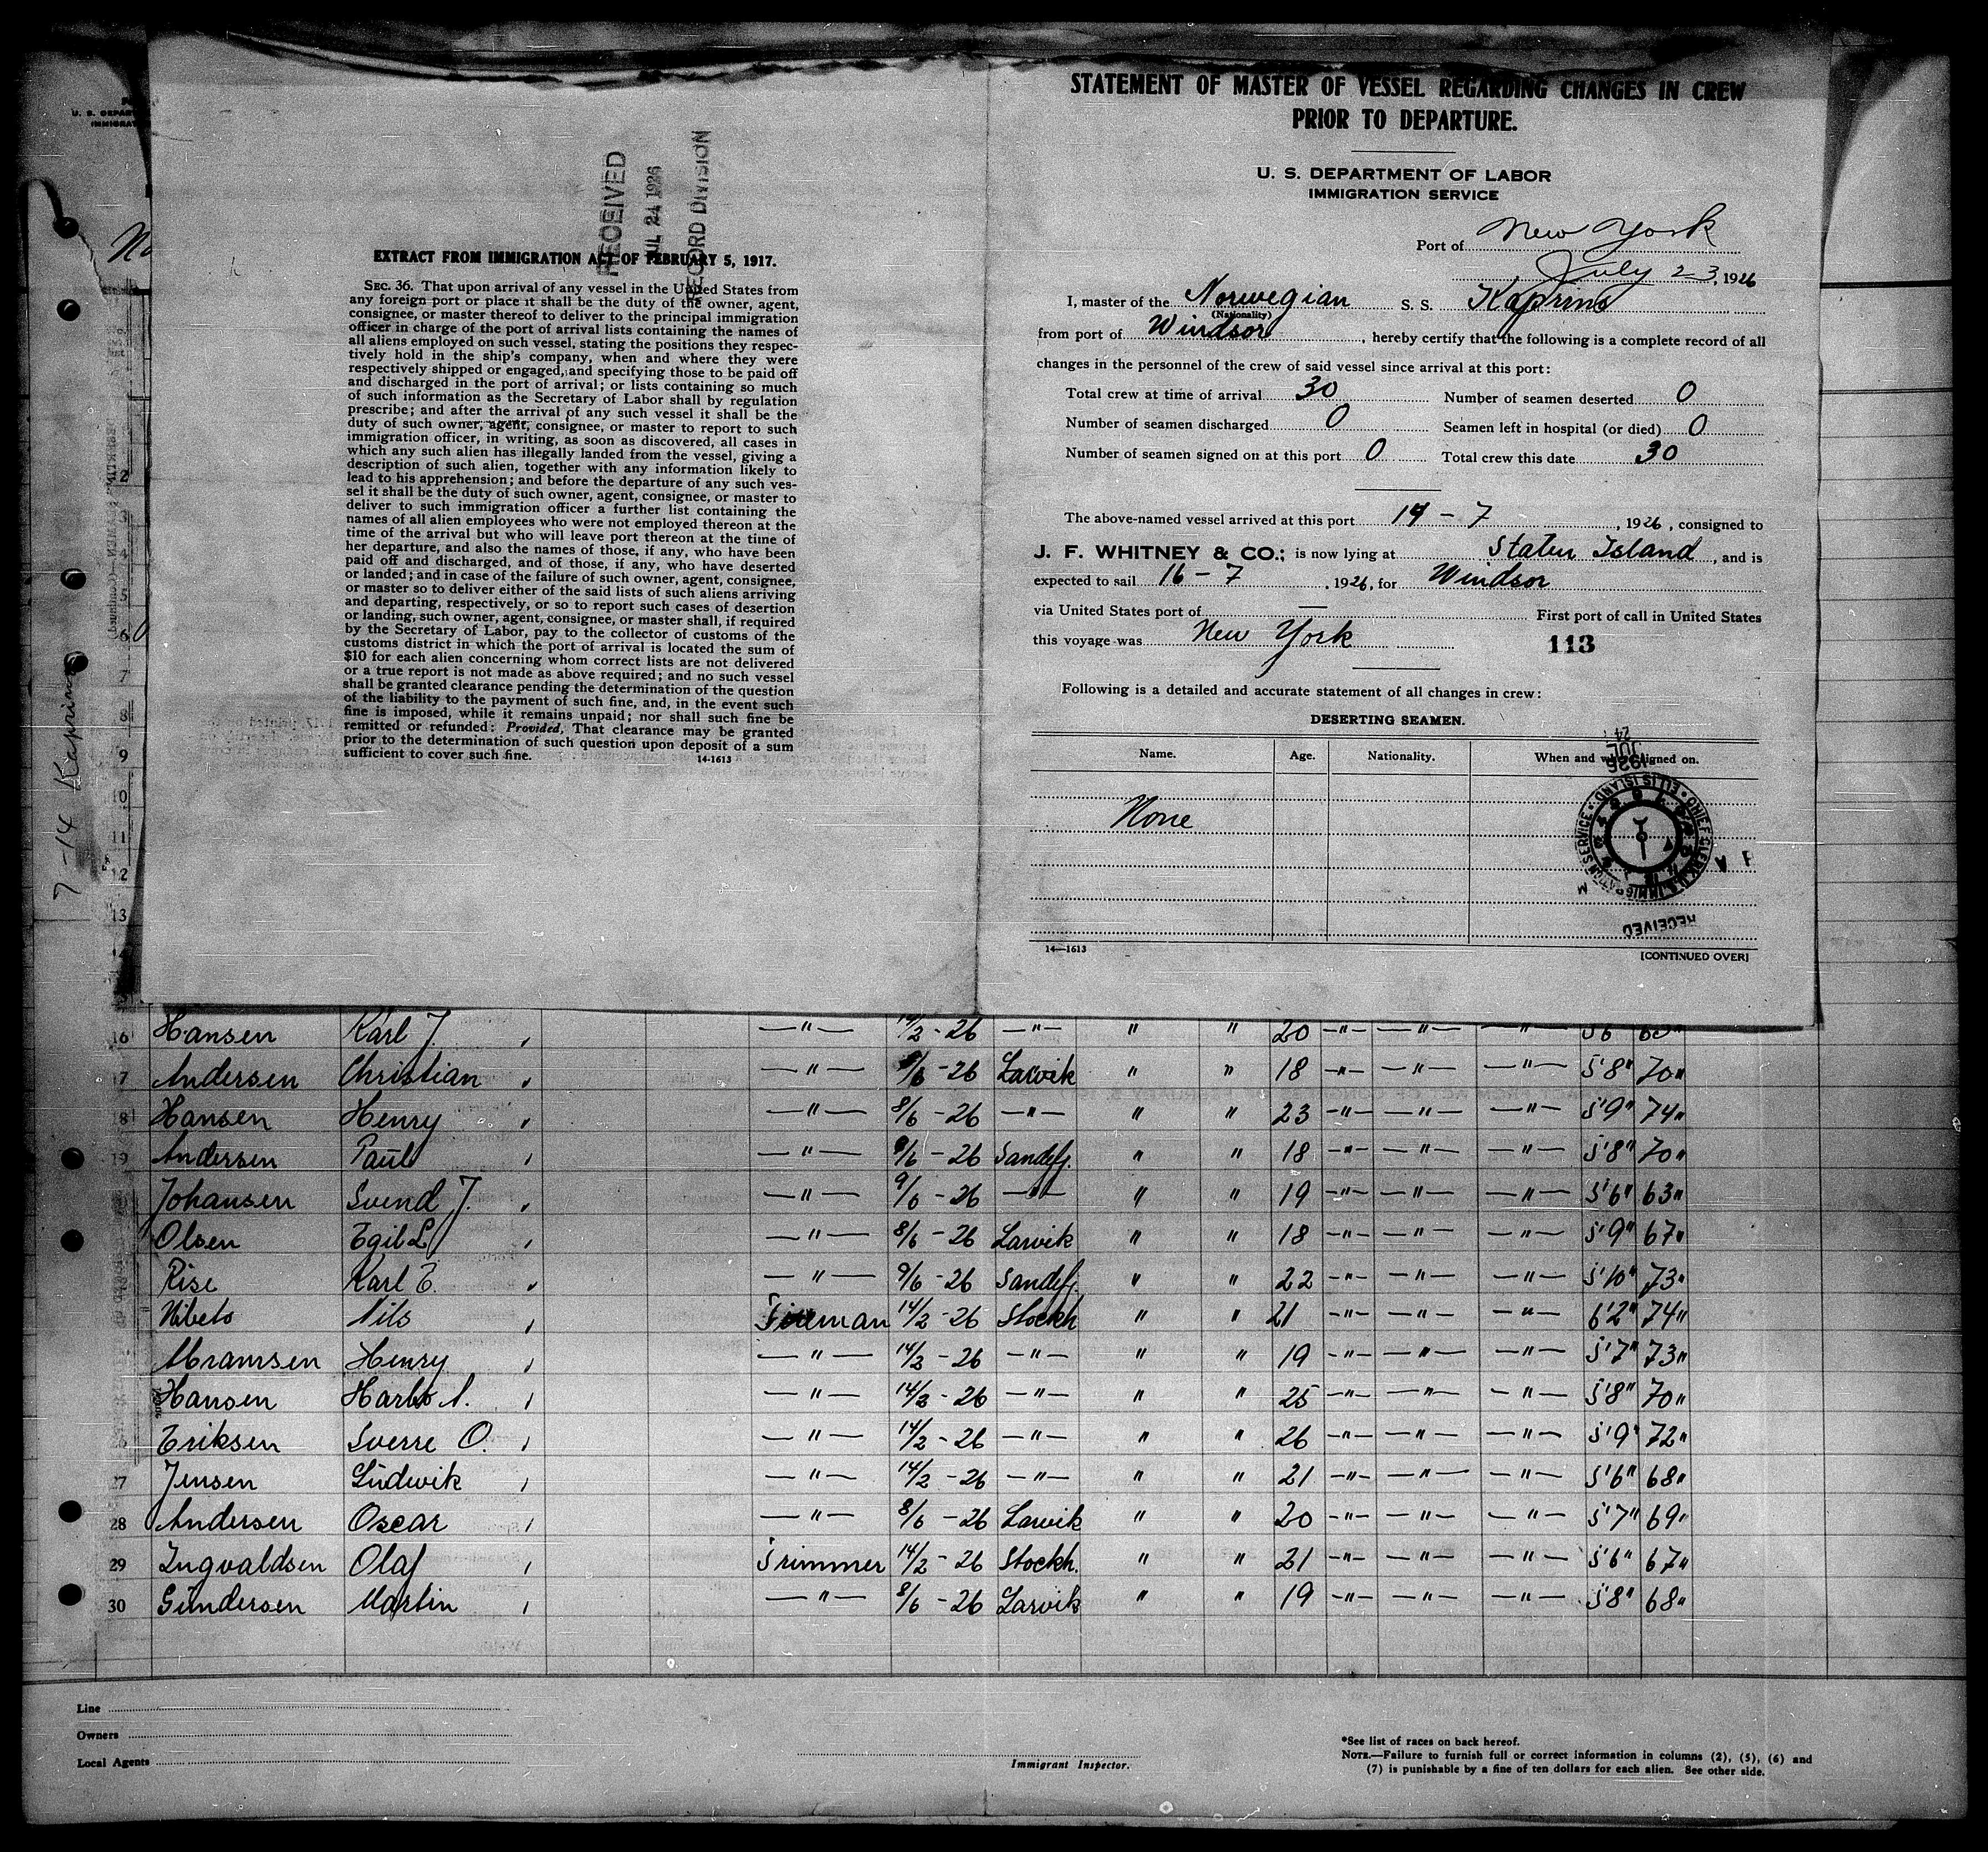 RECEIVED
JUL 24 1926
RECORD DIVISION
EXTRACT FROM IMMIGRATION ACT OF FEBRUARY 5, 1917.
SEC. 36. That upon arrival of any vessel in the United States from
any foreign port or place it shall be the duty of the owner, agent,
consignee, or master thereof to deliver to the principal immigration
officer in charge of the port of arrival lists containing the names of
all aliens employed on such vessel, stating the positions they respec-
tively hold in the ship's company, when and where they were
respectively shipped or engaged, and specifying those to be paid off
and discharged in the port of arrival; or lists containing so much
of such information as the Secretary of Labor shall by regulation
prescribe; and after the arrival of any such vessel it shall be the
duty of such owner, agent, consignee, or master to report to such
immigration officer, in writing, as soon as discovered, all cases in
which any such alien has illegally landed from the vessel, giving a
description of such alien, together with any information likely to
lead to his apprehension; and before the departure of any such ves-
sel it shall be the duty of such owner, agent, consignee, or master to
deliver to such immigration officer a further list containing the
names of all alien employees who were not employed thereon at the
time of the arrival but who will leave port thereon at the time of
her departure, and also the names of those, if any, who have been
paid off and discharged, and of those, if any, who have deserted
or landed; and in case of the failure of such owner, agent, consignee,
or master so to deliver either of the said lists of such aliens arriving
and departing, respectively, or so to report such cases of desertion
or landing, such owner, agent, consignee, or master shall, if required
by the Secretary of Labor, pay to the collector of customs of the
customs district in which the port of arrival is located the sum of
$10 for each alien concerning whom correct lists are not delivered
or a true report is not made as above required; and no such vessel
shall be granted clearance pending the determination of the question
of the liability to the payment of such fine, and, in the event such
fine is imposed, while it remains unpaid; nor shall such fine be
remitted or refunded: Provided, That clearance may be granted
prior to the determination of such question upon deposit of a sum
sufficient to cover such fine.
14-1613
STATEMENT OF MASTER OF VESSEL REGARDING CHANGES IN CREW
PRIOR TO DEPARTURE.
U. S. DEPARTMENT OF LABOR
IMMIGRATION SERVICE
Port of New York
July 23, 1926
I, master of the Norwegian S. S. Kaprino
(Nationality)
from port of Windsor, hereby certify that the following is a complete record of all
changes in the personnel of the crew of said vessel since arrival at this port:
Total crew at time of arrival 30 Number of seamen deserted 0
Number of seamen discharged 0 Seamen left in hospital (or died) 0
Number of seamen signed on at this port 0 Total crew this date 30
The above-named vessel arrived at this port 14 - 7, 1926, consigned to
J. F. WHITNEY & CO.; is now lying at Staten Island, and is
expected to sail 16 - 7, 1926, for Windsor
via United States port of — First port of call in United States
this voyage was New York 113
Following is a detailed and accurate statement of all changes in crew:
DESERTING SEAMEN.
Name. Age. Nationality. When and where signed on.
None
JUL 24 1926
CHIEF CLERK U.S. IMMIGRATION SERVICE ELLIS ISLAND
RECEIVED
14—1613
[CONTINUED OVER]
7-14 Kaprino
2
3
4
5
6
7
8
9
10
11
12
13
16 Hansen Karl J. —"— 14/2 - 26 —"— " " 20 —"— —"— —"— 5'6
17 Andersen Christian —"— /6 - 26 Larvik " " 18 —"— —"— —"— 5'8" 70"
18 Hansen Henry —"— 8/6 - 26 —"— " " 23 —"— —"— —"— 5'9" 74"
19 Andersen Paul —"— 9/6 - 26 Sandefj. " " 18 —"— —"— —"— 5'8" 70"
Johansen Svend J. —"— 9/6 - 26 —"— " " 19 —"— —"— —"— 5'6" 63"
Olsen Egil L —"— 8/6 - 26 Larvik " " 18 —"— —"— —"— 5'9" 67"
Rise Karl E. —"— 9/6 - 26 Sandefj. " " 22 —"— —"— —"— 5'10" 73"
Nils Fireman 14/2 - 26 Stockh " " 21 —"— —"— —"— 6'2" 74"
Abramsen Henry —"— 14/2 - 26 —"— " " 19 —"— —"— —"— 5'7" 73"
Hansen A. —"— 14/2 - 26 —"— " " 25 —"— —"— —"— 5'8" 70"
Eriksen Sverre O. —"— 14/2 - 26 —"— " " 26 —"— —"— —"— 5'9" 72"
27 Jensen Ludwik —"— 14/2 - 26 —"— " " 21 —"— —"— —"— 5'6" 68"
28 Andersen Oscar —"— 8/6 - 26 Larvik " " 20 —"— —"— —"— 5'7" 69"
29 Ingvaldsen Olaf Trimmer 14/2 - 26 Stockh. " " 21 —"— —"— —"— 5'6" 67"
30 Gundersen Martin —"— 8/6 - 26 Larvik " " 19 —"— —"— —"— 5'8" 68"
Line
Owners
Local Agents
Immigrant Inspector.
*See list of races on back hereof.
NOTE.—Failure to furnish full or correct information in columns (2), (5), (6) and
(7) is punishable by a fine of ten dollars for each alien. See other side.